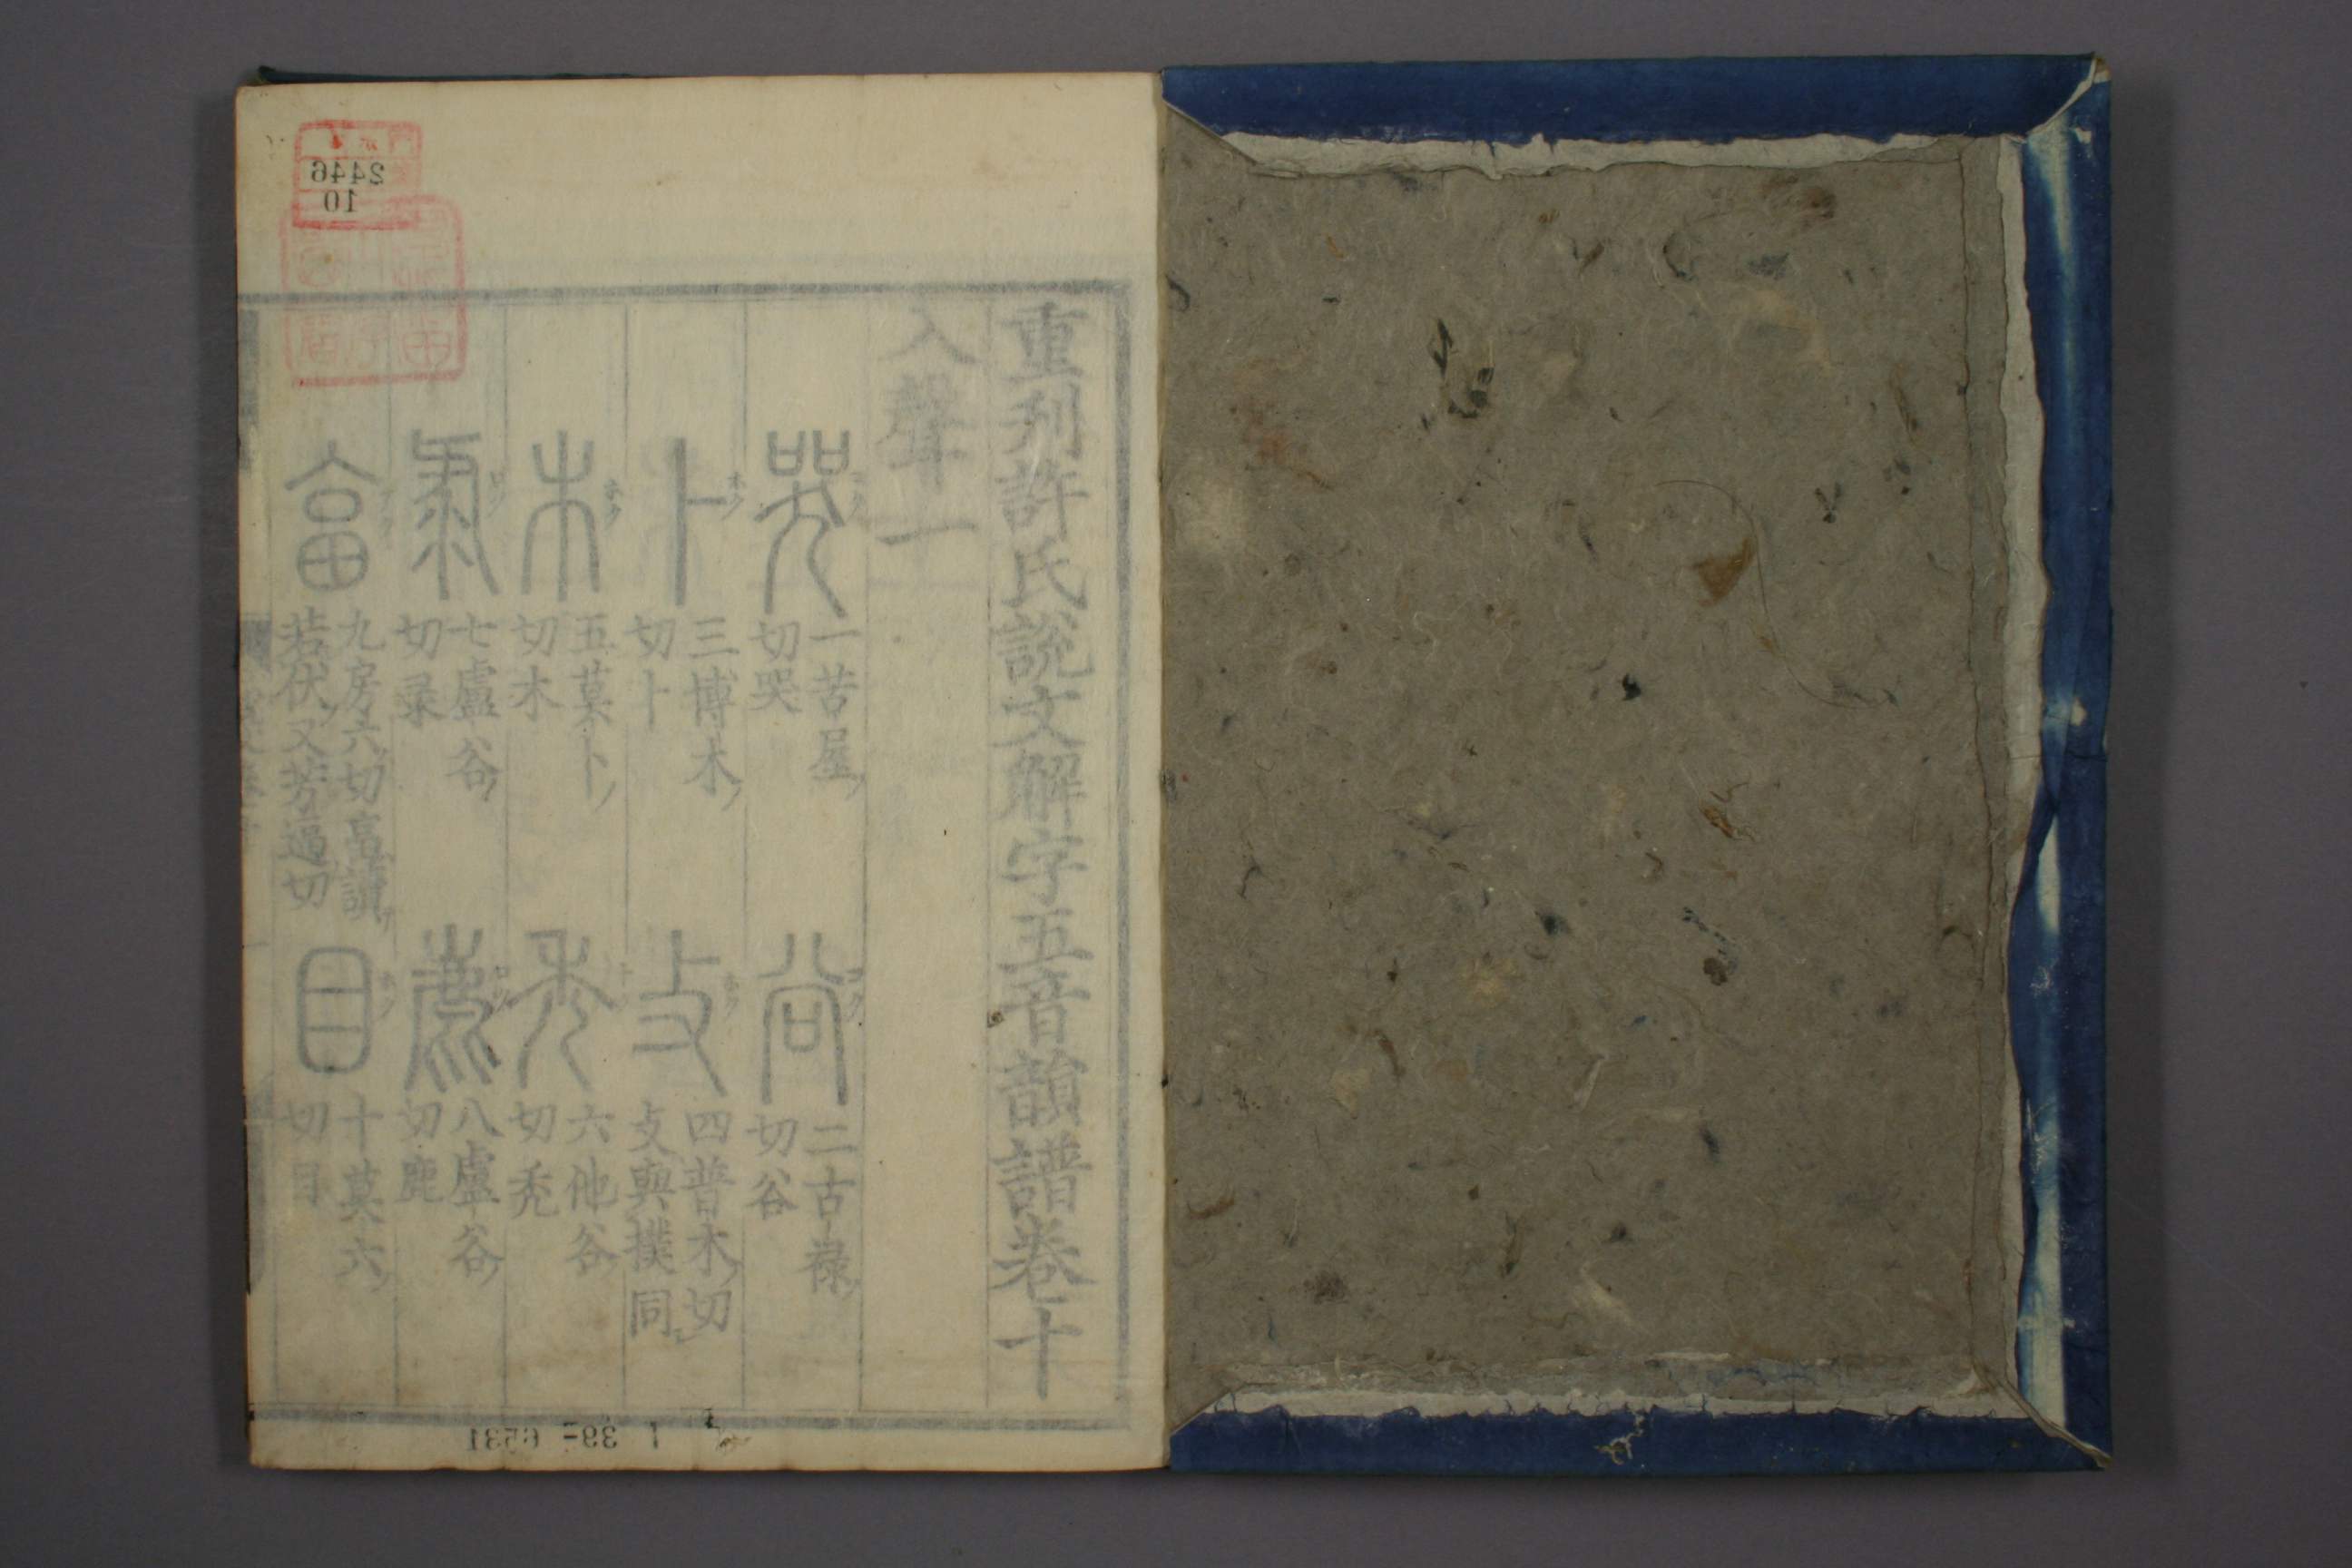 重刋許氏說文解字五音韻譜卷十
入聲一
哭 一苦屋切哭
谷 二古祿切谷
卜 三博木切卜
攴 四普木切攴與撲同
木 五莫卜切木
禿 六他谷切禿
彔 七盧谷切彔
鹿 八盧谷切鹿
畗 九房六切畗讀若伏又芳逼切
目 十莫六切目
2446
10
1 39-6531